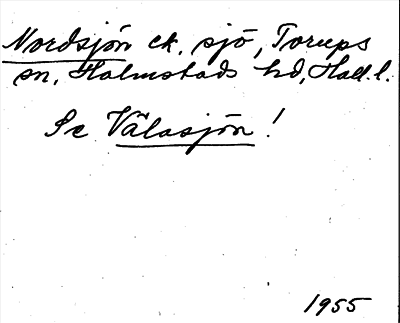 Nordsjön ek. sjö, Torups
sn, Halmstads hd, Hall. l.
Se Välasjön!
1955